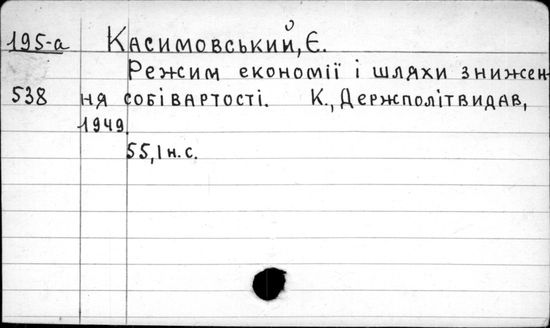 195-а Касимовський, Є.
Режим економії і шляхи знижен-
538 ня собівартості. К., Держполітвидав,
1949.
55, 1 н. с.